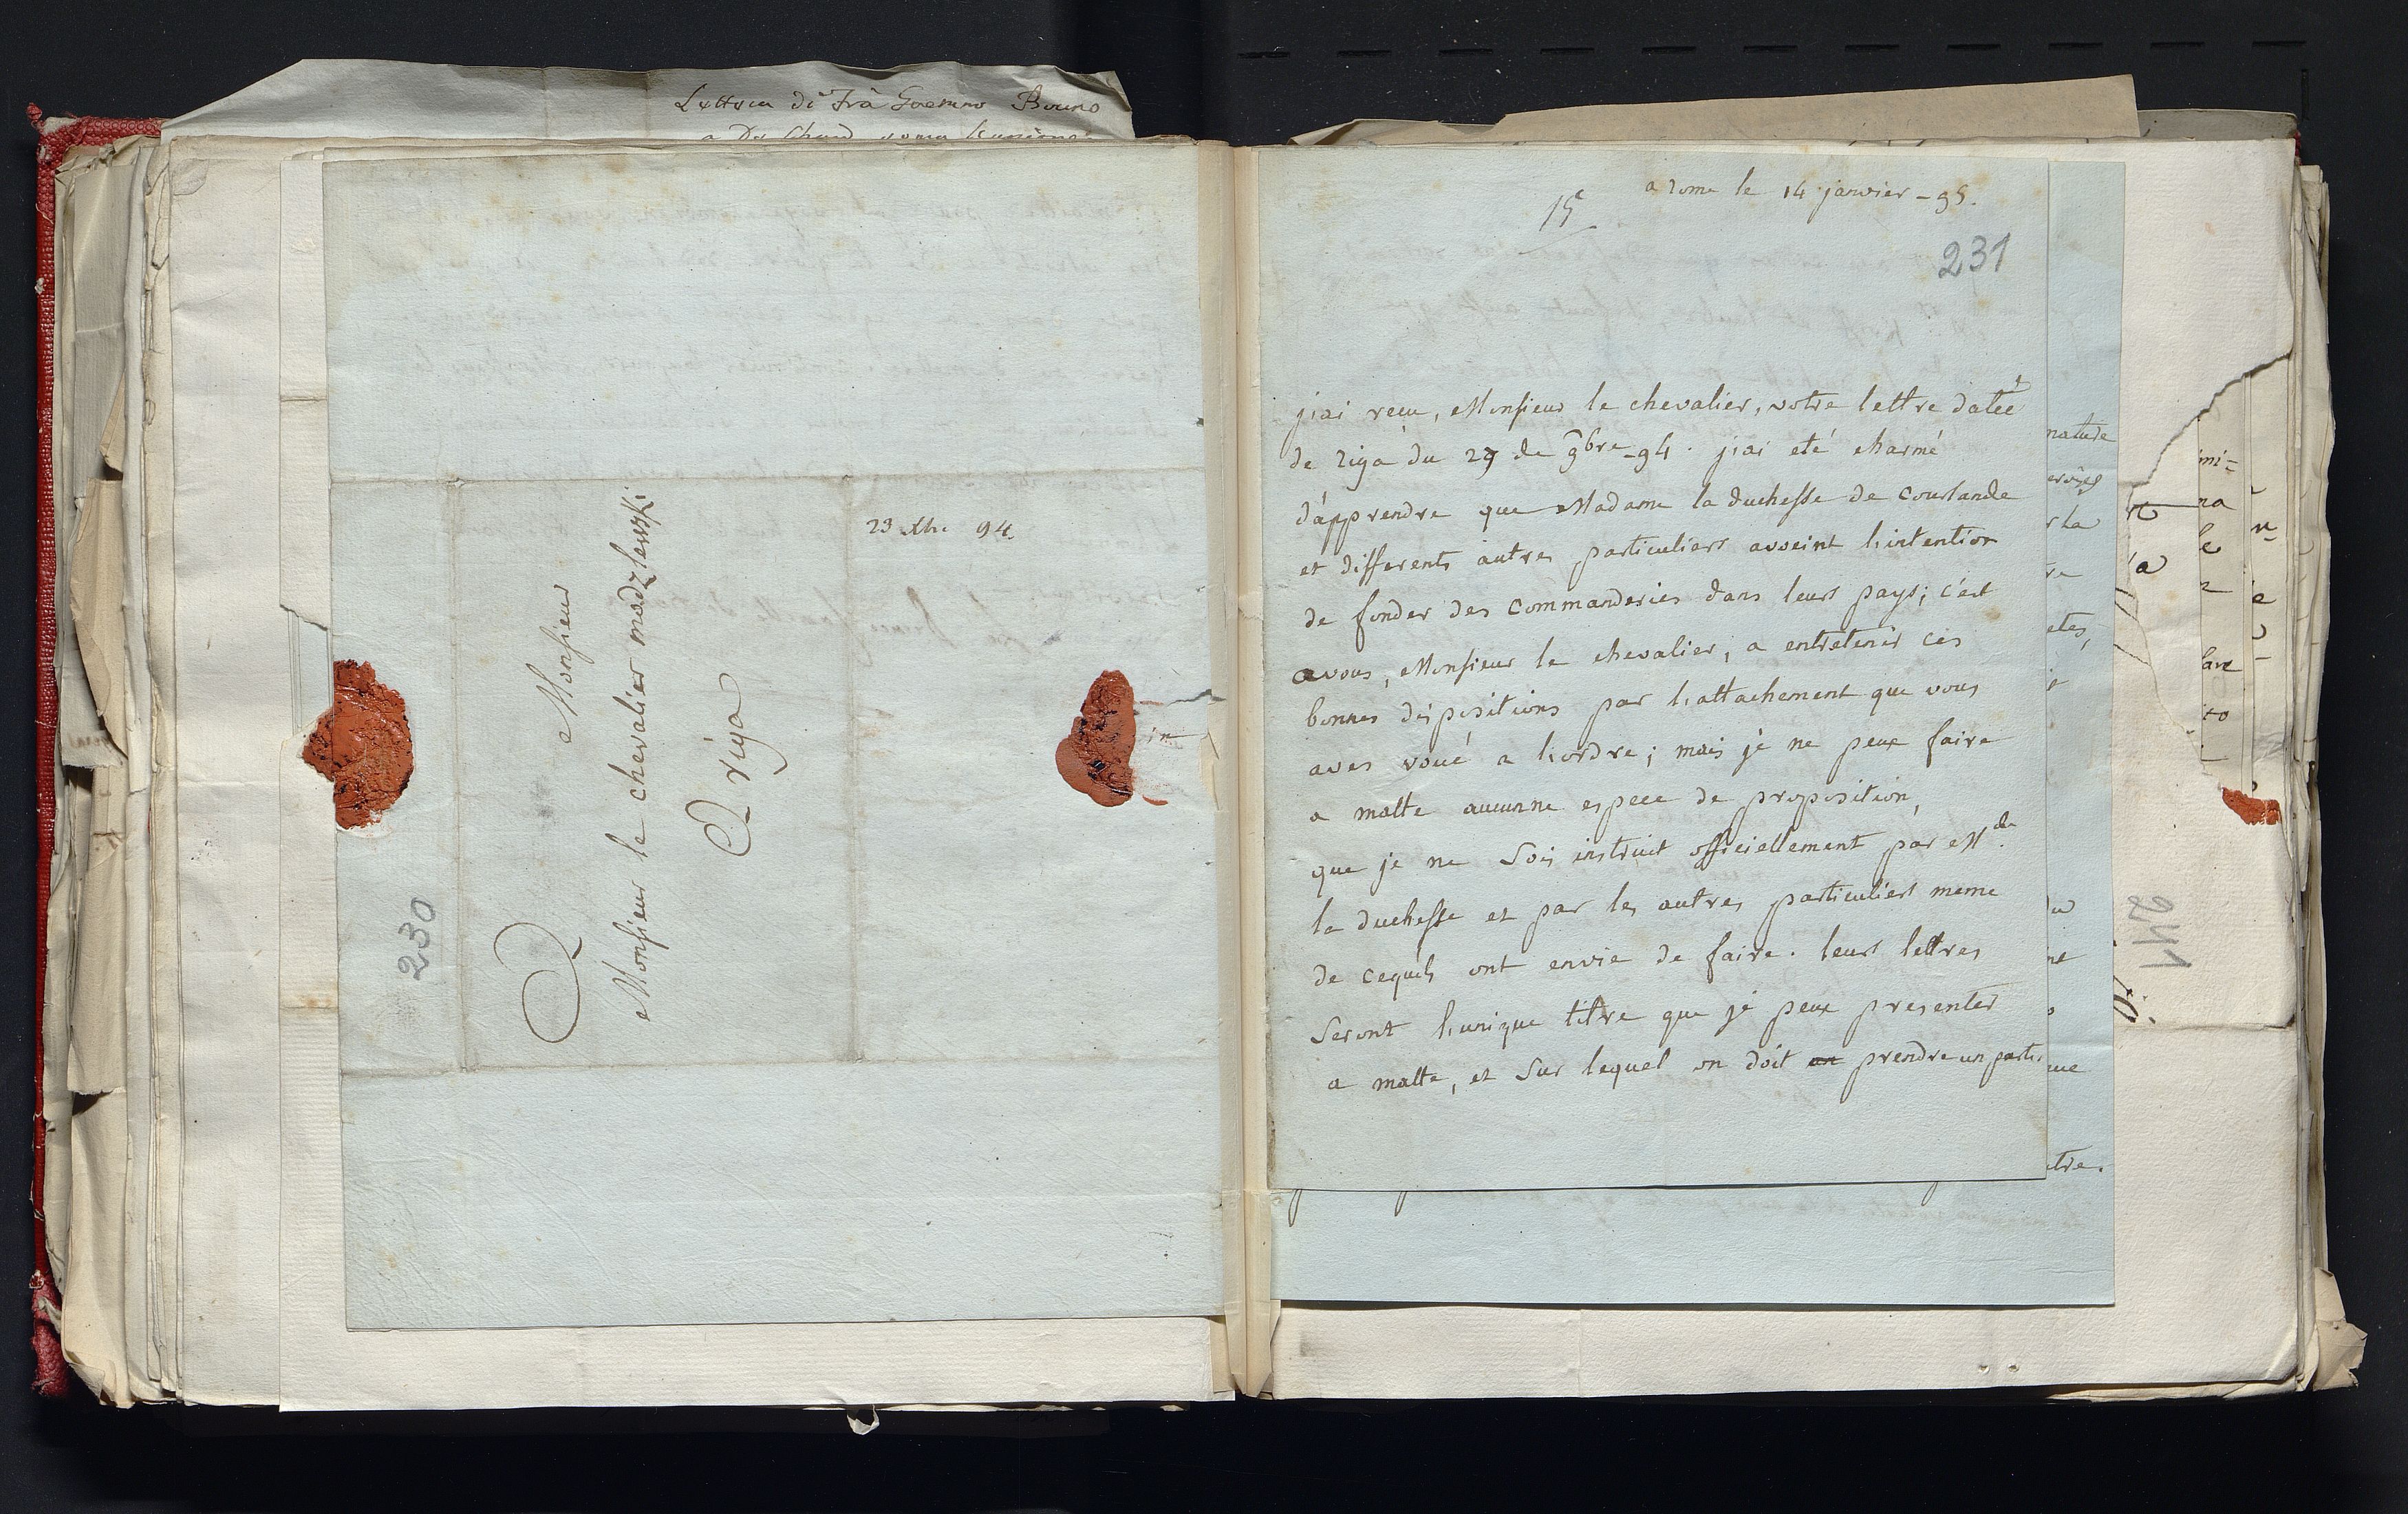 Lettera di Frà Gaetano Bruno
230
Monsieur
Monsieur le chevalier modzlewski
a riga
23 Xbre 94.
a rome le 14 janvier - 95.
15e
231
j'ai reçu, Monsieur le chevalier, votre lettre datée
de riga du 29 de 9bre - 94. j'ai eté charmé
d'apprendre que Madame la duchesse de Courlande
et differents autres particuliers avoeint l'intention
de fonder des Commanderies dans leurs pays; c'est
avous, Monsieur le chevalier, a entretenir ces
bonnes dispositions par l'attachement que vous
aves voué a l'ordre; mais je ne peux faire
a malte aucunne espece de proposition,
que je ne Sois instruit officiellement par Mde.
la duchesse et par les autres particuliers meme
de cequils ont envie de faire. leurs lettres
Seront l'unique titre que je peux presenter
a malte, et Sur lequel on doit en prendre un parti
nature
r la
re
etes,
ctre.
241